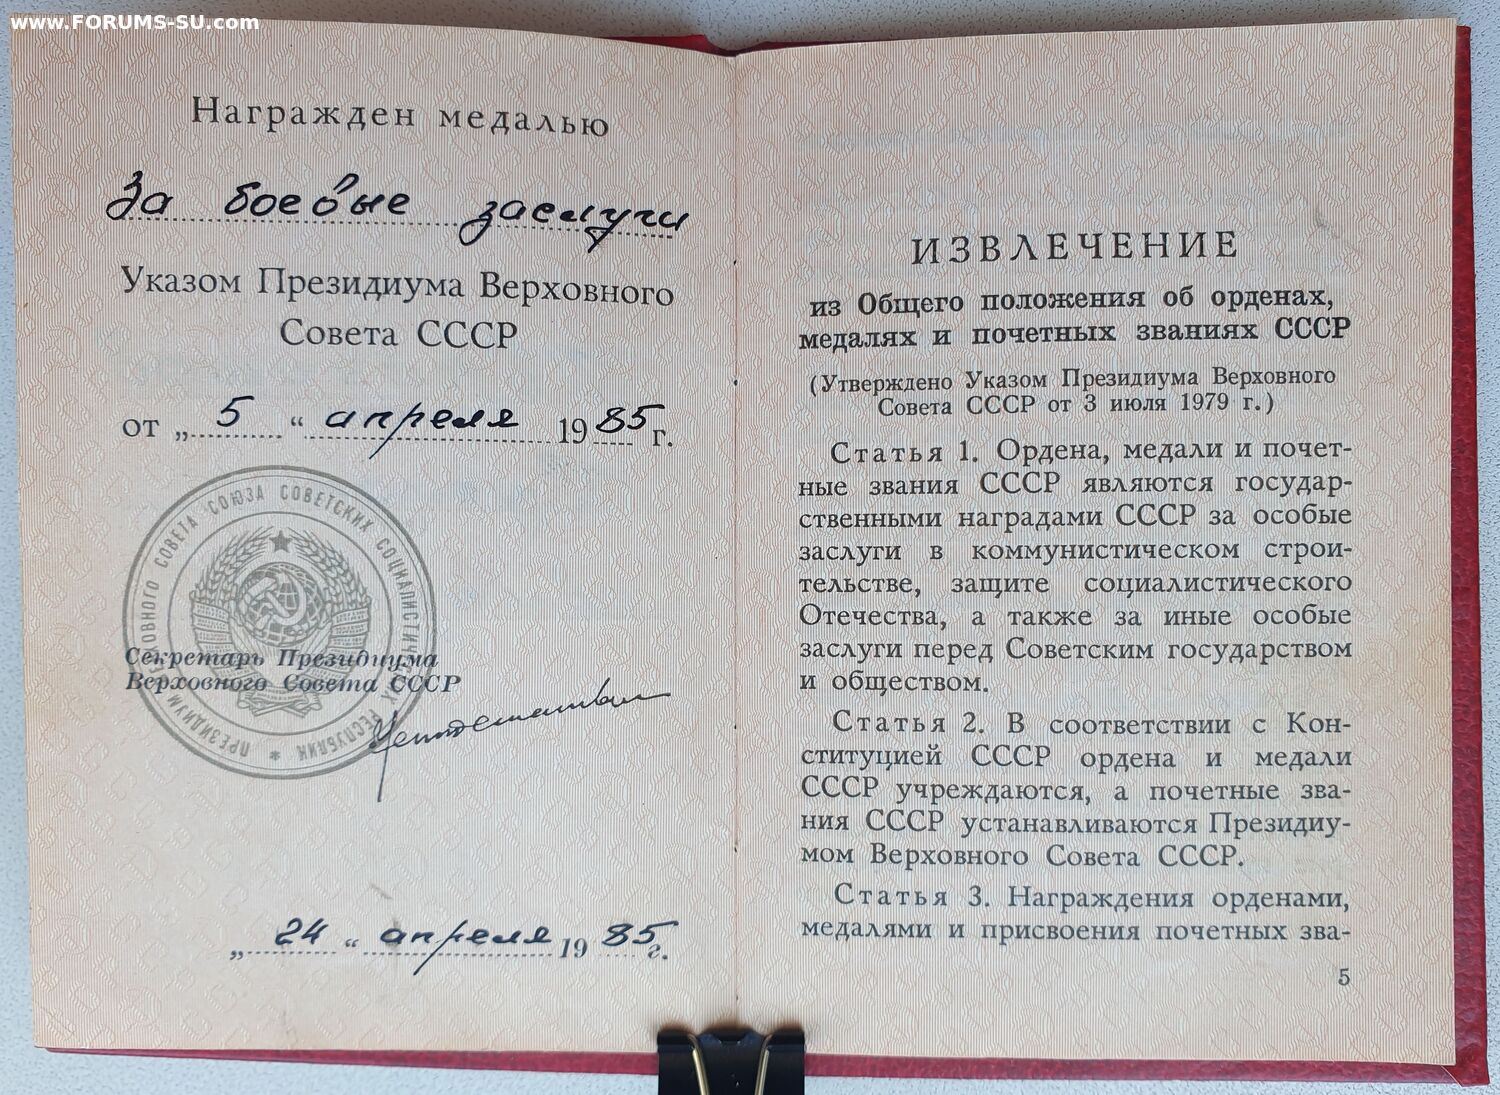 www.FORUMS-SU.com
Награжден медалью
За боевые заслуги
Указом Президиума Верховного
Совета СССР
от „ 5 “ апреля 1985 г.
ПРЕЗИДИУМ ВЕРХОВНОГО СОВЕТА СОЮЗА СОВЕТСКИХ СОЦИАЛИСТИЧЕСКИХ РЕСПУБЛИК
Секретарь Президиума
Верховного Совета СССР
„ 24 “ апреля 1985 г.
ИЗВЛЕЧЕНИЕ
из Общего положения об орденах,
медалях и почетных званиях СССР
(Утверждено Указом Президиума Верховного
Совета СССР от 3 июля 1979 г.)
Статья 1. Ордена, медали и почет-
ные звания СССР являются государ-
ственными наградами СССР за особые
заслуги в коммунистическом строи-
тельстве, защите социалистического
Отечества, а также за иные особые
заслуги перед Советским государством
и обществом.
Статья 2. В соответствии с Кон-
ституцией СССР ордена и медали
СССР учреждаются, а почетные зва-
ния СССР устанавливаются Президиу-
мом Верховного Совета СССР.
Статья 3. Награждения орденами,
медалями и присвоения почетных зва-
5